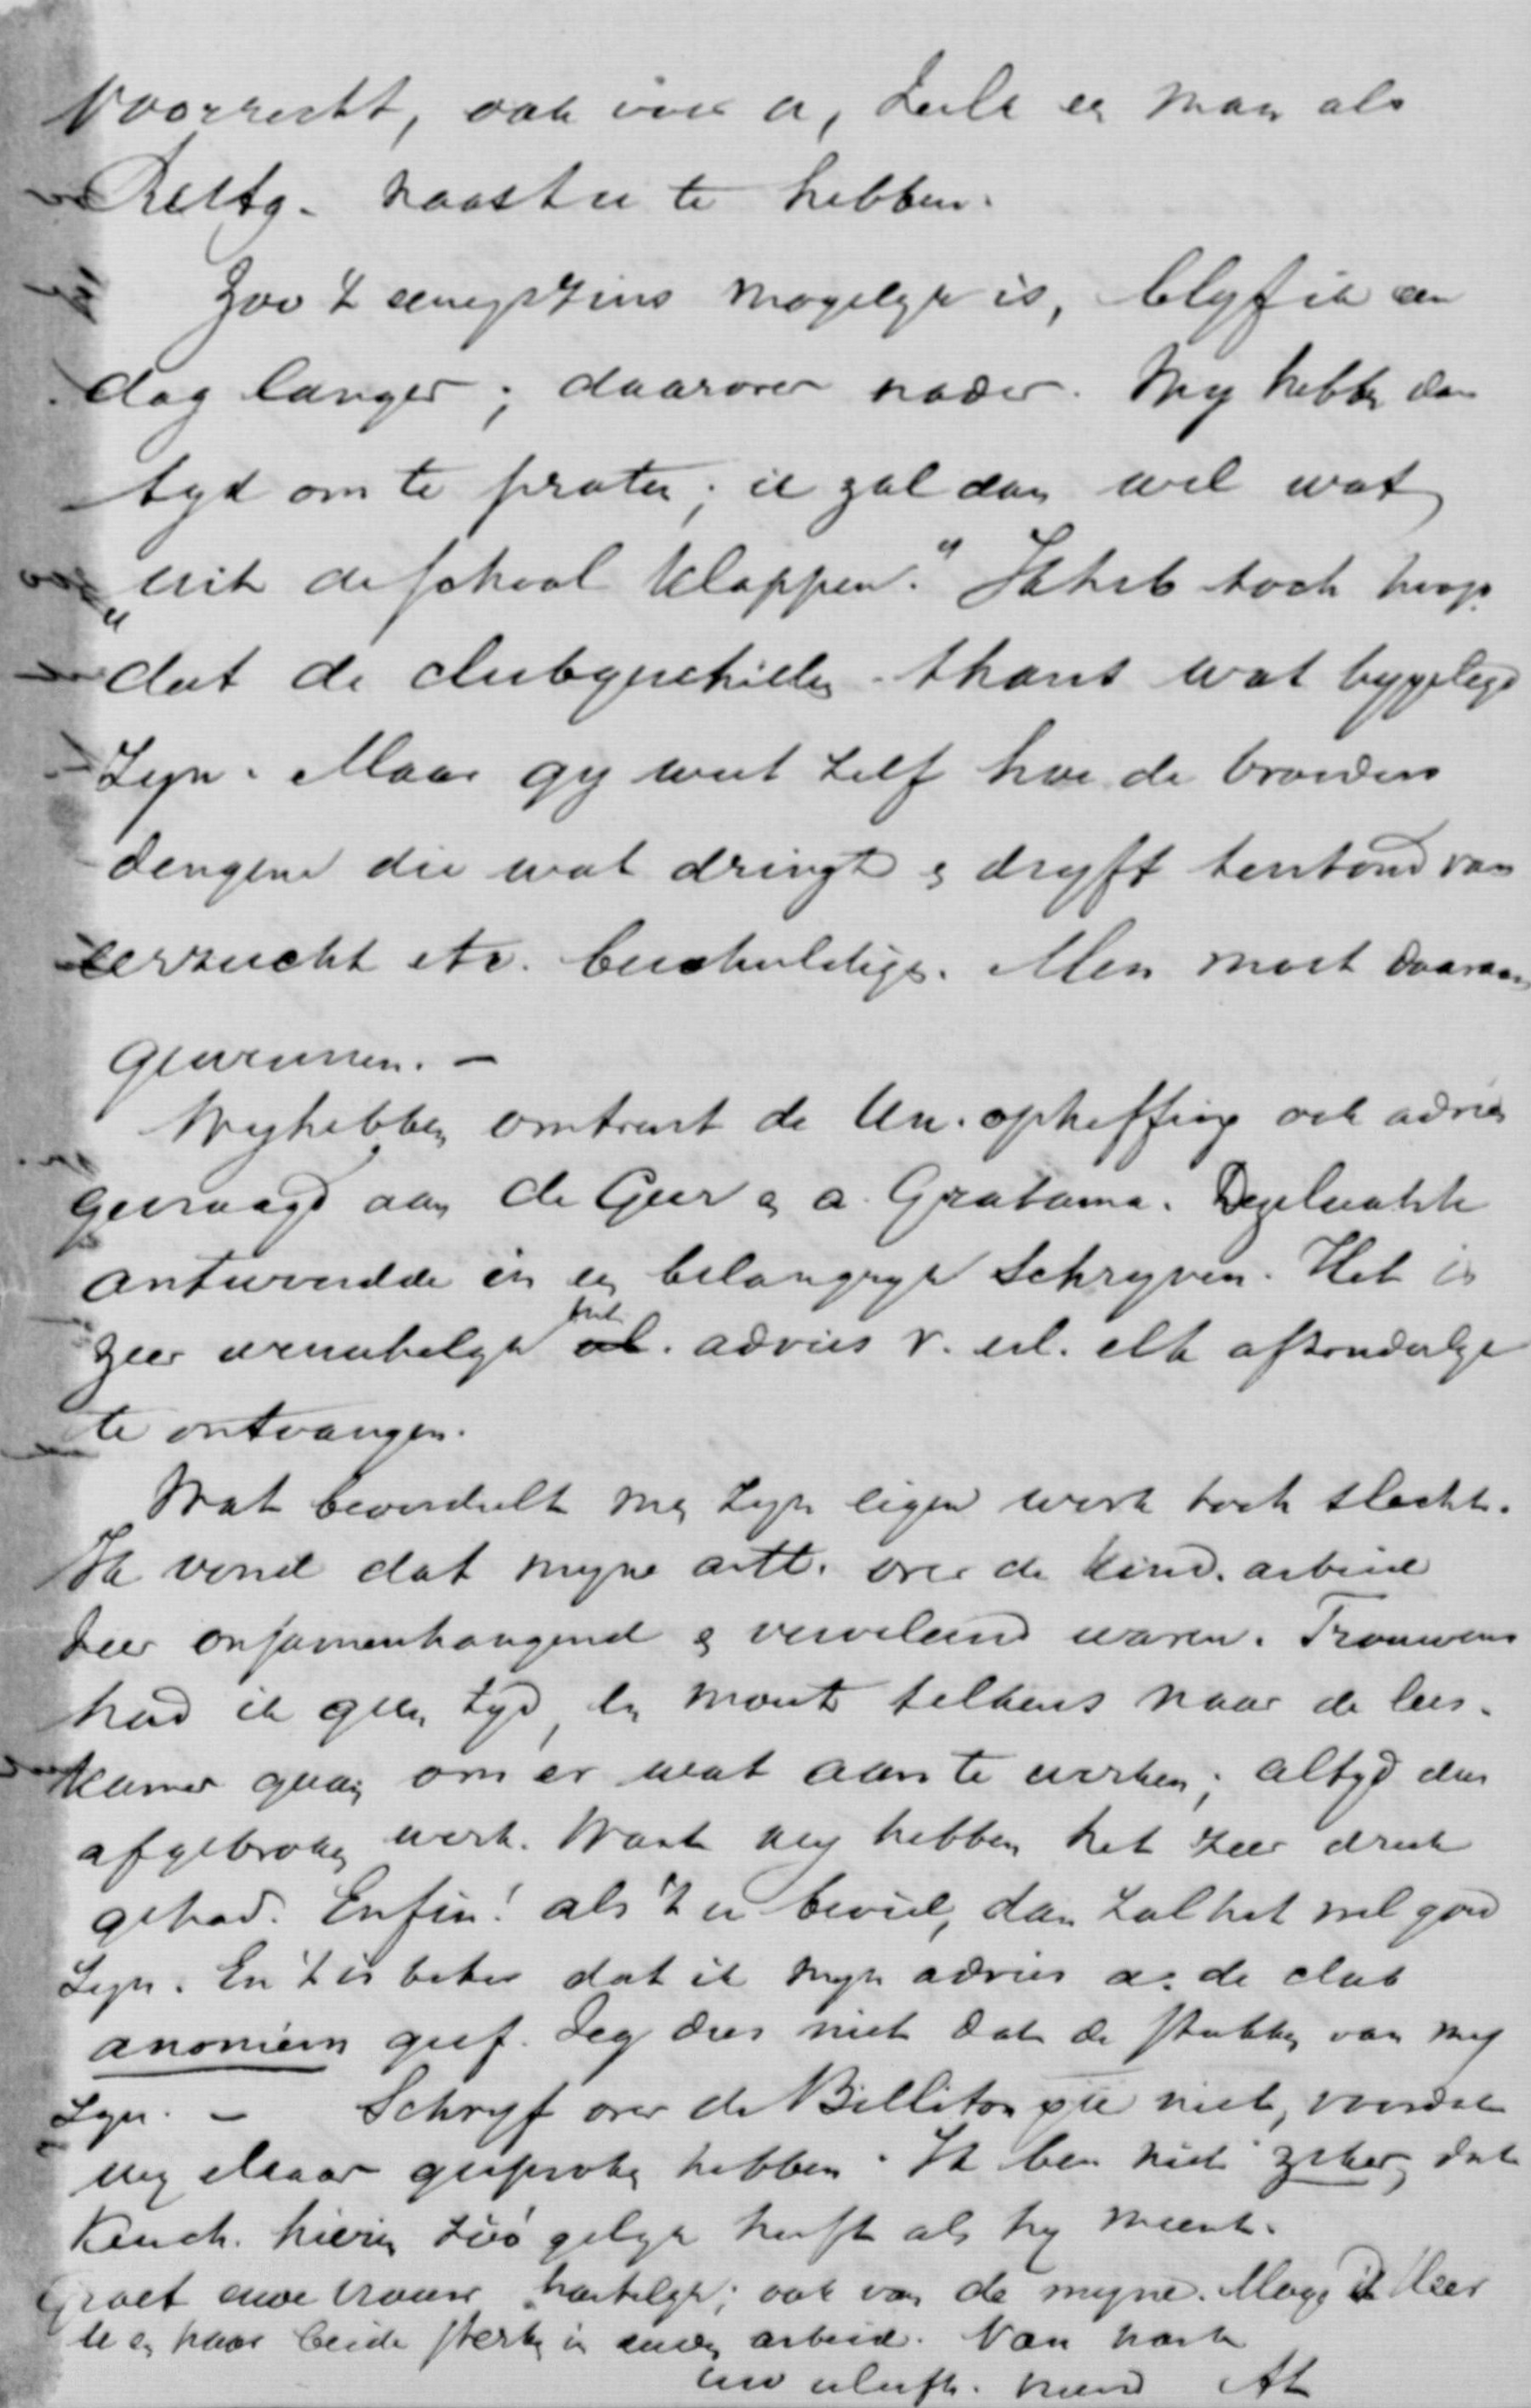 voorrecht, ook voor u, zulk een man als
naast u te hebben.
Zoo 't eenigszins mogelyk is, blyf ik een
dag langer; daarover nader. Wy hebben dan
tyd om te praten; ik zal dan wel wat
"uit de school klappen." Ik heb toch hoop
dat de clubgeschillen thans wat bygelegd
zyn. Maar gy weet zelf hoe de broeders
dengene die wat dringt en dryft terstond van
eerzucht etc. beschuldigen. Men moet daaraan
gewennen. -
Wy hebben omtrent de Un. opheffing ook advies
gevraagd aan de Geer en a. Gratama. Laatste
antwoordde in een belangryk schryven. Het is
zeer wenschelyk advies v. elk afzonderlyk
te ontvangen.
Wat beoordeelt men zyn eigen werk toch slecht.
Ik vond dat myne artt. over de kind. arbeid
zeer onsamenhangend en vervelend waren. Trouwens
had ik geen tyd, en moest telkens naar de lees-
kamer gaan om er wat aan te werken; altyd dus
afgebroken werk. Want wy hebben het zeer druk
gehad. Enfin! als 't u beviel, dan zal het wel goed
zyn. En 't is beter dat ik myn advies a. de club
anoniem geef. Zeg dus niet dat de stukken van my
zyn. - Schryf over de Billiton qu. niet, voordat
wy elkaar gesproken hebben. Ik ben niet zeker, dat
hierin zóó gelyk heeft als hy meent.
Groet uwe vrouw hartelyk; ook van de myne. Moge de Heer
u en haar beide sterken in uwen arbeid. Van harte
uw liefh. vriend AK